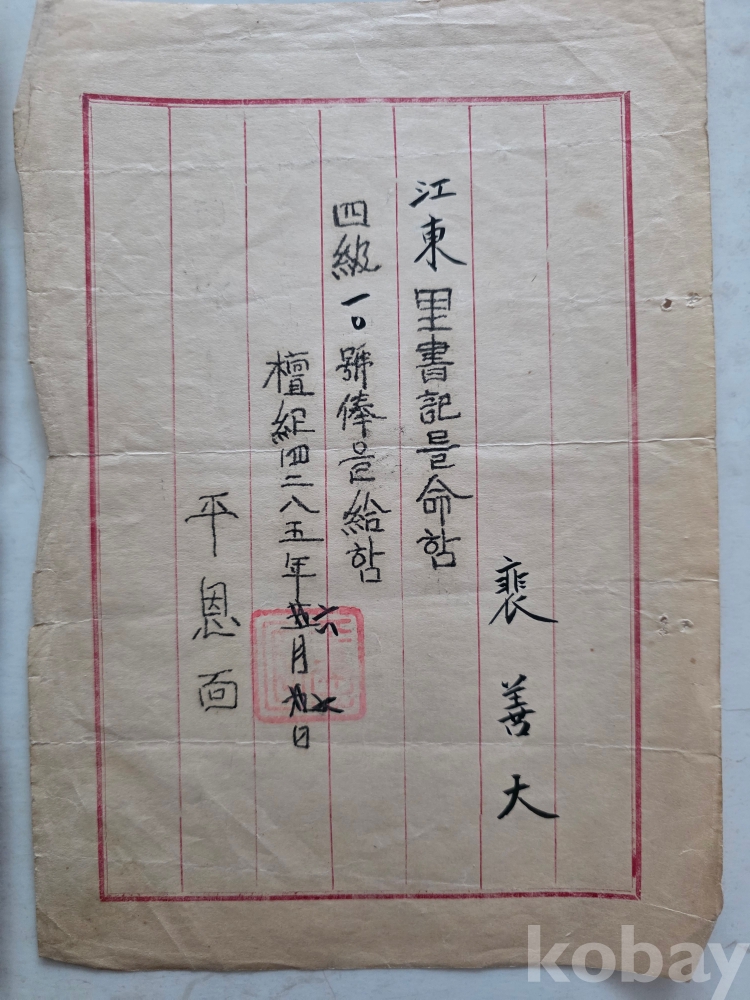 裴善大
江東里書記를命함
四級一〇號俸을給함
檀紀四二八五年六月日
平恩面
kobay